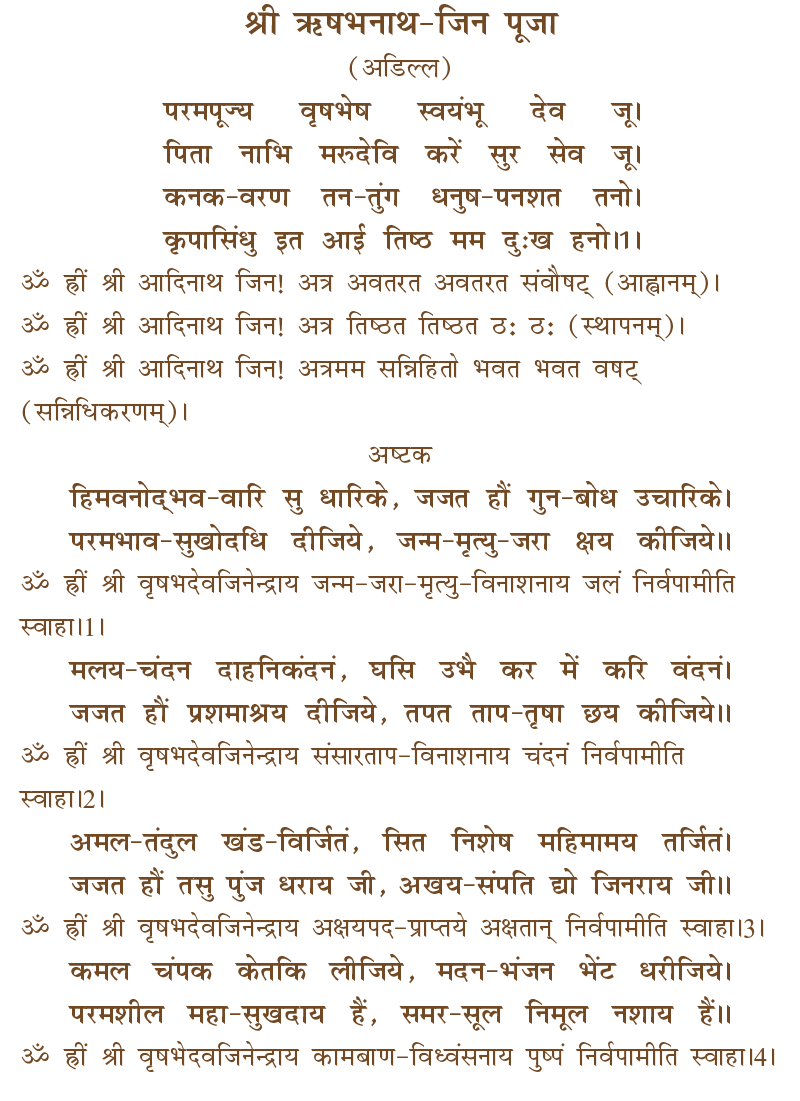 श्री ऋषभनाथ-जिन पूजा
(अडिल्ल)
परमपूज्य वृषभेष स्वयंभू देव जू।
पिता नाभि मरुदेवि करें सुर सेव जू।
कनक-वरण तन-तुंग धनुष-पनशत तनो।
कृपासिंधु इत आई तिष्ठ मम दुःख हनो।1।
ॐ ह्रीं श्री आदिनाथ जिन! अत्र अवतरत अवतरत संवौषट् (आह्वानम्)।
ॐ ह्रीं श्री आदिनाथ जिन! अत्र तिष्ठत तिष्ठत ठः ठः (स्थापनम्)।
ॐ ह्रीं श्री आदिनाथ जिन! अत्रमम सन्निहितो भवत भवत वषट्
(सन्निधिकरणम्)।
अष्टक
हिमवनोद्‌भव-वारि सु धारिके, जजत हौं गुन-बोध उचारिके।
परमभाव-सुखोदधि दीजिये, जन्म-मृत्यु-जरा क्षय कीजिये॥
ॐ ह्रीं श्री वृषभदेवजिनेन्द्राय जन्म-जरा-मृत्यु-विनाशनाय जलं निर्वपामीति
स्वाहा।1।
मलय-चंदन दाहनिकंदनं, घसि उभै कर में करि वंदनं।
जजत हौं प्रशमाश्रय दीजिये, तपत ताप-तृषा छय कीजिये॥
ॐ ह्रीं श्री वृषभदेवजिनेन्द्राय संसारताप-विनाशनाय चंदनं निर्वपामीति
स्वाहा।2।
अमल-तंदुल खंड-विर्जितं, सित निशेष महिमामय तर्जितं।
जजत हौं तसु पुंज धराय जी, अखय-संपति द्यो जिनराय जी॥
ॐ ह्रीं श्री वृषभदेवजिनेन्द्राय अक्षयपद-प्राप्तये अक्षतान् निर्वपामीति स्वाहा।3।
कमल चंपक केतकि लीजिये, मदन-भंजन भेंट धरीजिये।
परमशील महा-सुखदाय हैं, समर-सूल निमूल नशाय हैं॥
ॐ ह्रीं श्री वृषभेदवजिनेन्द्राय कामबाण-विध्वंसनाय पुष्पं निर्वपामीति स्वाहा।4।